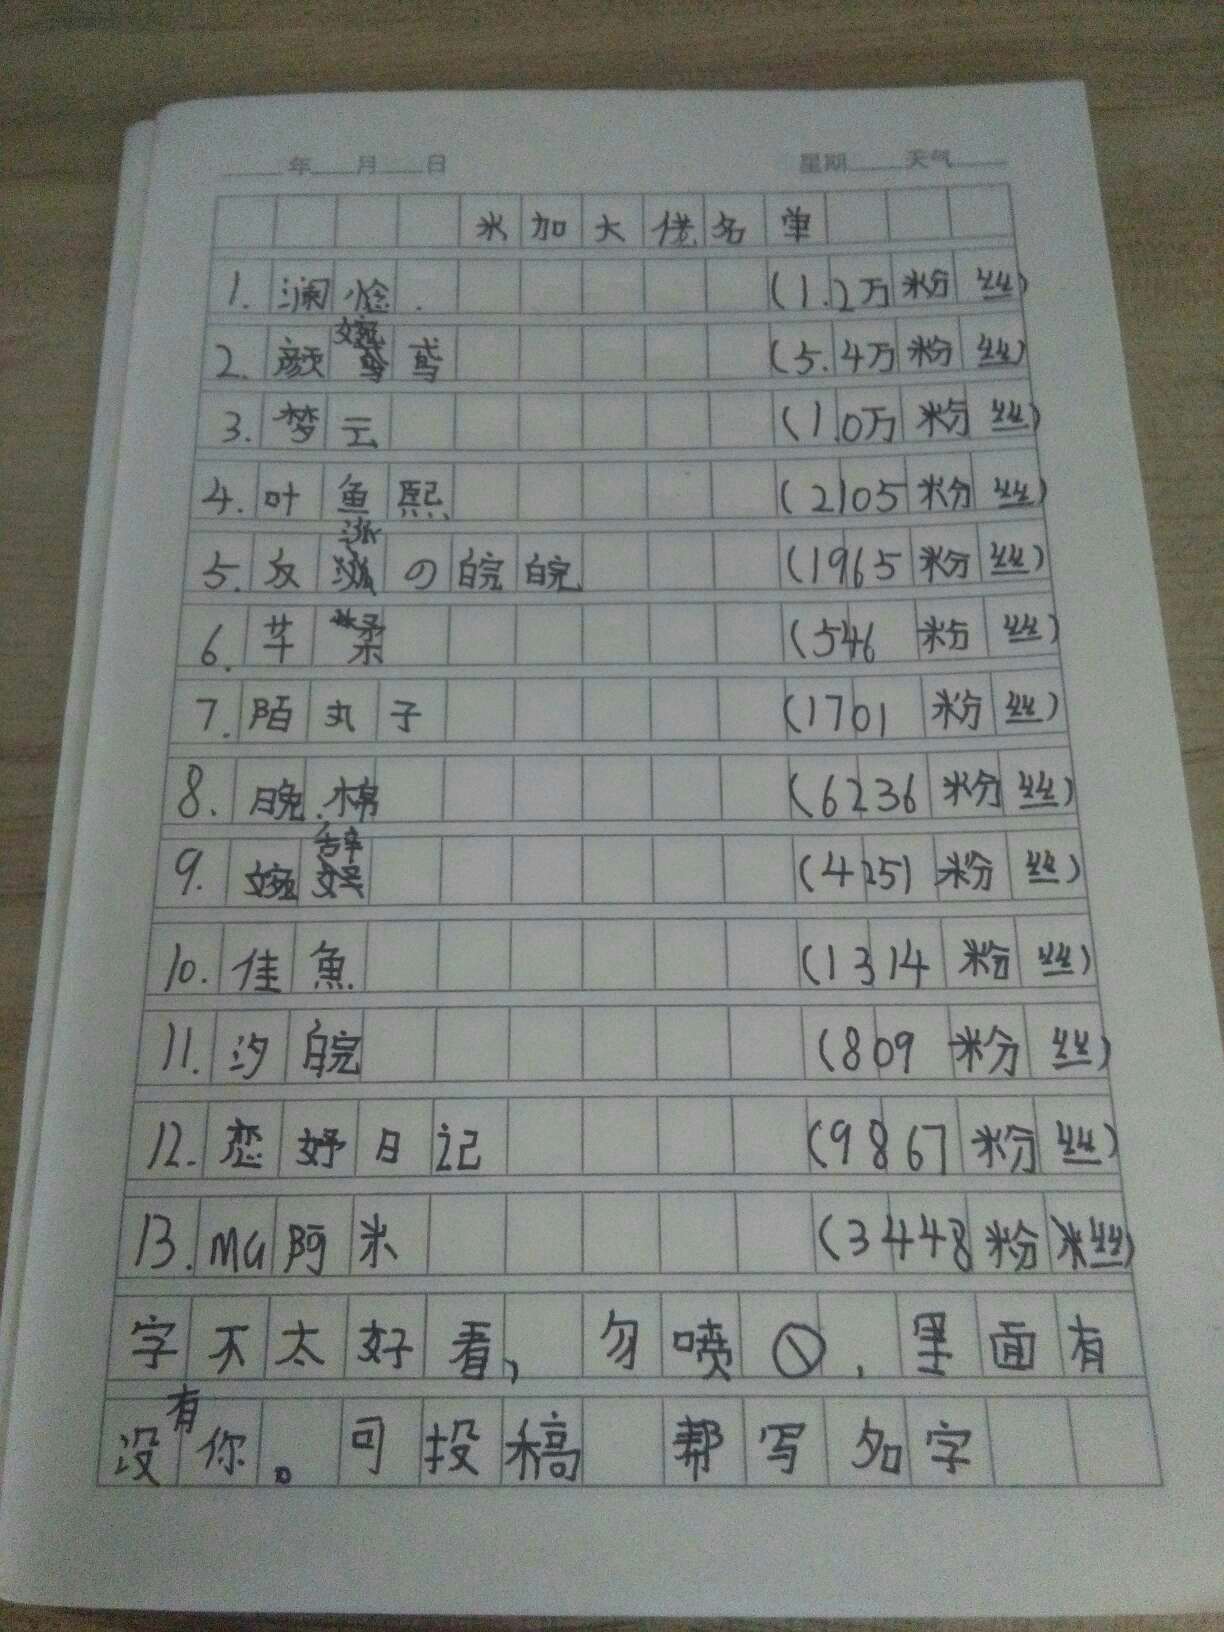 年 月 日 星期 天气
米加大佬名单
1. 澜惗. (1.2万粉丝)
2. 颜鸢 (5.4万粉丝)
3. 梦云 (10万粉丝)
4. 叶鱼熙 (2105粉丝)
5. の皖皖 (1965粉丝)
6. 芊柔 (546粉丝)
7. 陌丸子 (1701粉丝)
8. 晚.棉 (6236粉丝)
9. 婉辞 (4251粉丝)
10. 佳魚. (1314粉丝)
11. 汐皖 (809粉丝)
12. 恋妤日记 (9867粉丝)
13. MG阿米 (3448粉丝)
字不太好看,勿喷,里面有
没有你。可投稿 帮写名字